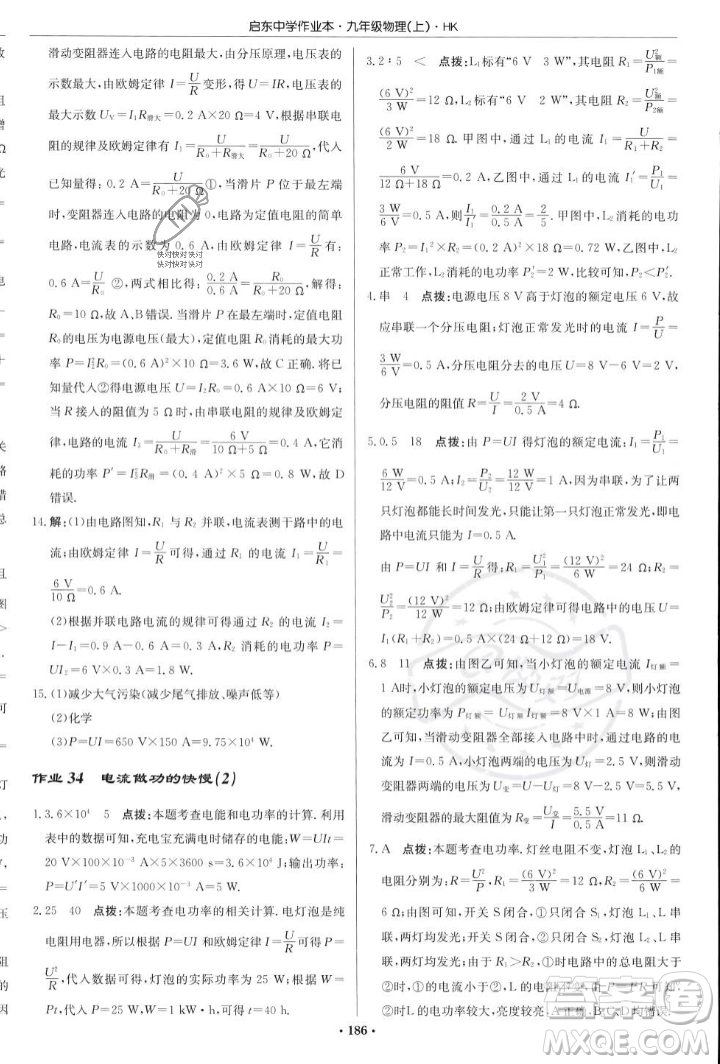 启东中学作业本·九年级物理(上)·HK
滑动变阻器连入电路的电阻最大,由分压原理,电压表的
示数最大,由欧姆定律 I=U/R 变形,得电压表的
最大示数 U_V=I₁R滑大=0.2 A×20 Ω=4 V,根据串联电
阻的规律及欧姆定律有 I=U/(R₀+R滑大)=U/(R₀+20 Ω),代入
已知量得:0.2 A=U/(R₀+20 Ω)①;当滑片 P 位于最左端
时,变阻器连入电路的电阻为 0,电路为定值电阻的简单
电路,电流表的示数为 0.6 A,由欧姆定律 I=U/R 有:
0.6 A=U/R₀ ②,两式相比得:0.2 A/0.6 A=R₀/(R₀+20 Ω),解得:
R₀=10 Ω,故 A、B错误.滑片 P 位于最左端时,定值电
阻的电压为电源电压(最大),定值电阻消耗的最大
功率 P=I₂²R₀=(0.6 A)²×10 Ω=3.6 W,故 C 正确.将已
知量代入②得电源电压 U=I₂R₀=0.6 A×10 Ω=6 V,
当 R 接入的阻值为 5 Ω 时,由串联电阻的规律及欧姆定
律,电路中的电流 I₃=U/(R₀+R滑)=6 V/(10 Ω+5 Ω)=0.4 A,它消
耗的功率 P′=I₃²R滑=(0.4 A)²×5 Ω=0.8 W,故 D
错误.
14.解:(1)由电路图知,R₁ 与 R₂ 并联,电流表测干路中的电
流;由欧姆定律 I=U/R 可得,通过 R₁ 的电流 I₁=U/R₁=
6 V/10 Ω=0.6 A.
(2)根据并联电路电流的规律可得,通过 R₂ 的电流 I₂=
I-I₁=0.9 A-0.6 A=0.3 A,R₂ 消耗的电功率 P=
UI₂=6 V×0.3 A=1.8 W.
15.(1)减少大气污染(减少尾气排放、噪声低等)
(2)化学
(3)P=UI=650 V×150 A=9.75×10⁴ W.
作业 34 电流做功的快慢(2)
1.3.6×10⁴ 5 点拨:本题考查电能和电功率的计算.利用
表中的数据可知,充电宝充满电时储存的电能:W=UIt=
20 V×100×10⁻³ A×5×3600 s=3.6×10⁴ J;输出功率:
P=U′I′=5 V×1000×10⁻³ A=5 W.
2.25 40 点拨:本题考查电功率的相关计算.电灯泡是纯
电阻用电器,所以根据 P=UI 和欧姆定律 I=U/R 可得 P=
U²/R,代入数据可得,灯泡的实际功率为 25 W;根据 W=
Pt,代入 P=25 W,W=1 kW·h,可得 t=40 h.
3.2∶5 < 点拨:L₁标有“6 V 3 W”,其电阻 R₁=U₁额²/P₁额=
(6 V)²/3 W=12 Ω,L₂标有“6 V 2 W”,其电阻 R₂=U₂额²/P₂额=
(6 V)²/2 W=18 Ω.甲图中,通过 L₁ 的电流 I₁=U/(R₁+R₂)=
6 V/(12 Ω+18 Ω)=0.2 A,乙图中,通过 L₁ 的电流 I₁′=P₁/U₁=
3 W/6 V=0.5 A,则 I₁/I₁′=0.2 A/0.5 A=2/5.甲图中,L₂ 消耗的电功
率 P₂=I₁²R₂=(0.2 A)²×18 Ω=0.72 W;乙图中,L₂
正常工作,L₂ 消耗的电功率 P₂′=2 W,比较可知,P₂<P₂′.
4.串 4 点拨:电源电压 8 V 高于灯泡的额定电压 6 V,故
应串联一个分压电阻;灯泡正常发光时的电流 I=P/U=
3 W/6 V=0.5 A,分压电阻分去的电压 U=8 V-6 V=2 V,
分压电阻的阻值 R=U/I=2 V/0.5 A=4 Ω.
5.0.5 18 点拨:由 P=UI 得灯泡的额定电流:I₁=P₁/U₁=
6 W/12 V=0.5 A,I₂=P₂/U₂=12 W/12 V=1 A,因串联后要求两
只灯泡都能长时间发光,只能让第一只灯泡正常发光,即电
路中电流只能为 I=0.5 A.
由 P=UI 和 I=U/R 得 R₁=U₁²/P₁=(12 V)²/6 W=24 Ω,R₂=
U₂²/P₂=(12 V)²/12 W=12 Ω;由欧姆定律可得电路中的电压 U=
I₁(R₁+R₂)=0.5 A×(24 Ω+12 Ω)=18 V.
6.8 11 点拨:由图乙可知,当小灯泡的额定电流 I灯额=
1 A时,小灯泡的额定电压 U灯额=U电源=8 V,则小灯
泡的额定功率为 P灯额=U灯额I灯额=8 V×1 A=8 W;当
滑动变阻器全部接入电路时,由图乙可知,I=
0.5 A,小灯泡两端的电压 U灯=2.5 V,则滑动变阻
器两端的电压为 U变=U-U灯=8 V-2.5 V=5.5 V,
滑动变阻器的最大阻值为 R变=U变/I=5.5 V/0.5 A=11 Ω.
7.A 点拨:本题考查电功率.灯丝电阻不变,灯泡 L₁、L₂ 的
电阻分别为:R=U²/P,R₁=(6 V)²/6 W=6 Ω,R₂=(6 V)²/9 W=
4 Ω;由图可知,开关 S 闭合,①闭合 S₁,灯泡 L₁、L₂ 串
联,两灯均发光;开关 S 闭合,②闭合 S₂,灯泡 L₁、L₂ 并
联,两灯均发光;由于 R₁>R₂,根据电功率公式可知,
①时(L₁亮度亮,②时(L₂亮度亮,A正确,B、C、D均错误.
·186·
快对快对快对
快对快对快对